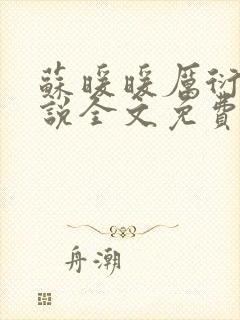 蘇暖暖厲衍
說全文免費
舟潮